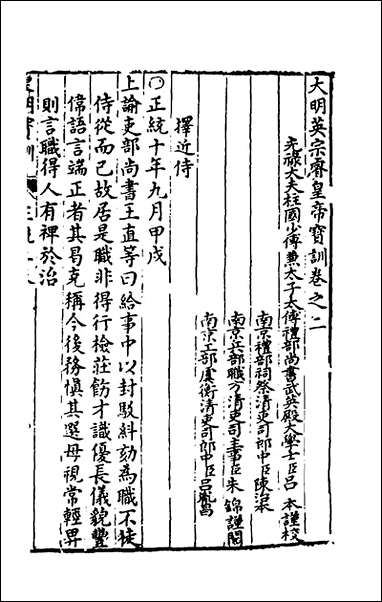 大明英宗睿皇帝寶訓卷之二
光祿大夫柱國少傅兼太子太傅禮部尚書武英殿大學士臣呂 本謹校
南京禮部祠祭清吏司郎中臣陳治本
南京兵部職方清吏司主事臣朱 錦謹閱
南京工部虞衡清吏司郎中臣呂胤昌
擇近侍
○正統十年九月甲戌
上諭吏部尚書王直等曰給事中以封駁糾劾為職不徒
侍從而已故居是職非得行檢莊飭才識優長儀貌豐
偉語言端正者其曷克稱今後務慎其選毋視常輕畀
則言職得人有裨於治